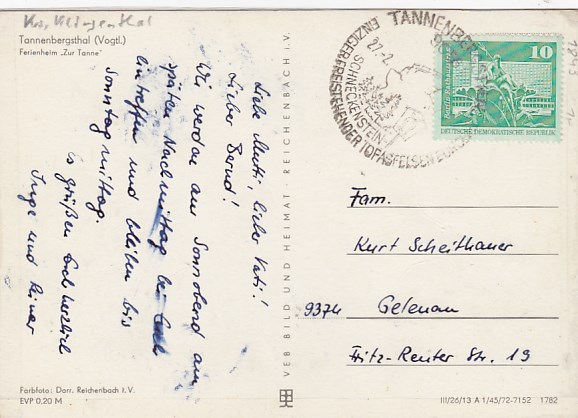 Kr. Klingenthal
Tannenbergsthal (Vogtl.)
Ferienheim „Zur Tanne"
Liebe Mutti, lieber Vati!
Lieber Bernd!
Wir werden am Sonnabend am
späten Nachmittag bei Euch
eintreffen und bleiben bis
Sonntagmittag.
Es grüßen Euch herzlich
Inge und Rainer
Farbfoto: Darr, Reichenbach i. V.
EVP 0,20 M
VEB BILD UND HEIMAT · REICHENBACH i. V.
TANNENBERGSTHAL
27.2.
SCHNECKENSTEIN
EINZIGER FREISTEHENDER TOPASFELSEN EUROPAS
10
DEUTSCHE DEMOKRATISCHE REPUBLIK
Fam.
Kurt Scheithauer
9374 Gelenau
Fritz-Reuter Str. 19
III/26/13 A 1/45/72-7152 1782